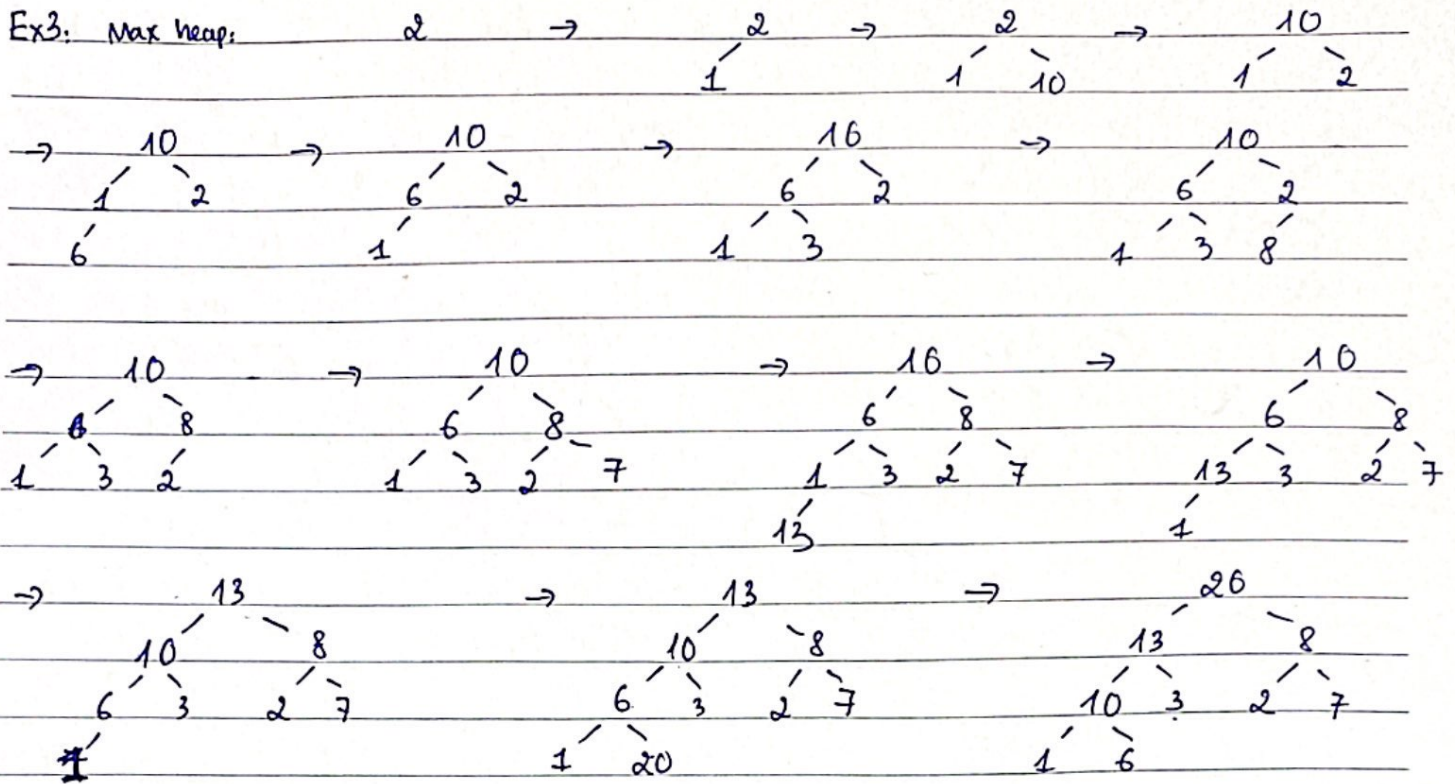 Ex3: Max heap: 2 → 2 → 2 → 10
1 1 10 1 2
→ 10 → 10 → 10 → 10
1 2 6 2 6 2 6 2
6 1 1 3 1 3 8
→ 10 → 10 → 10 → 10
6 8 6 8 6 8 6 8
1 3 2 1 3 2 7 1 3 2 7 13 3 2 7
13 1
→ 13 → 13 → 20
10 8 10 8 13 8
6 3 2 7 6 3 2 7 10 3 2 7
1 1 20 1 6